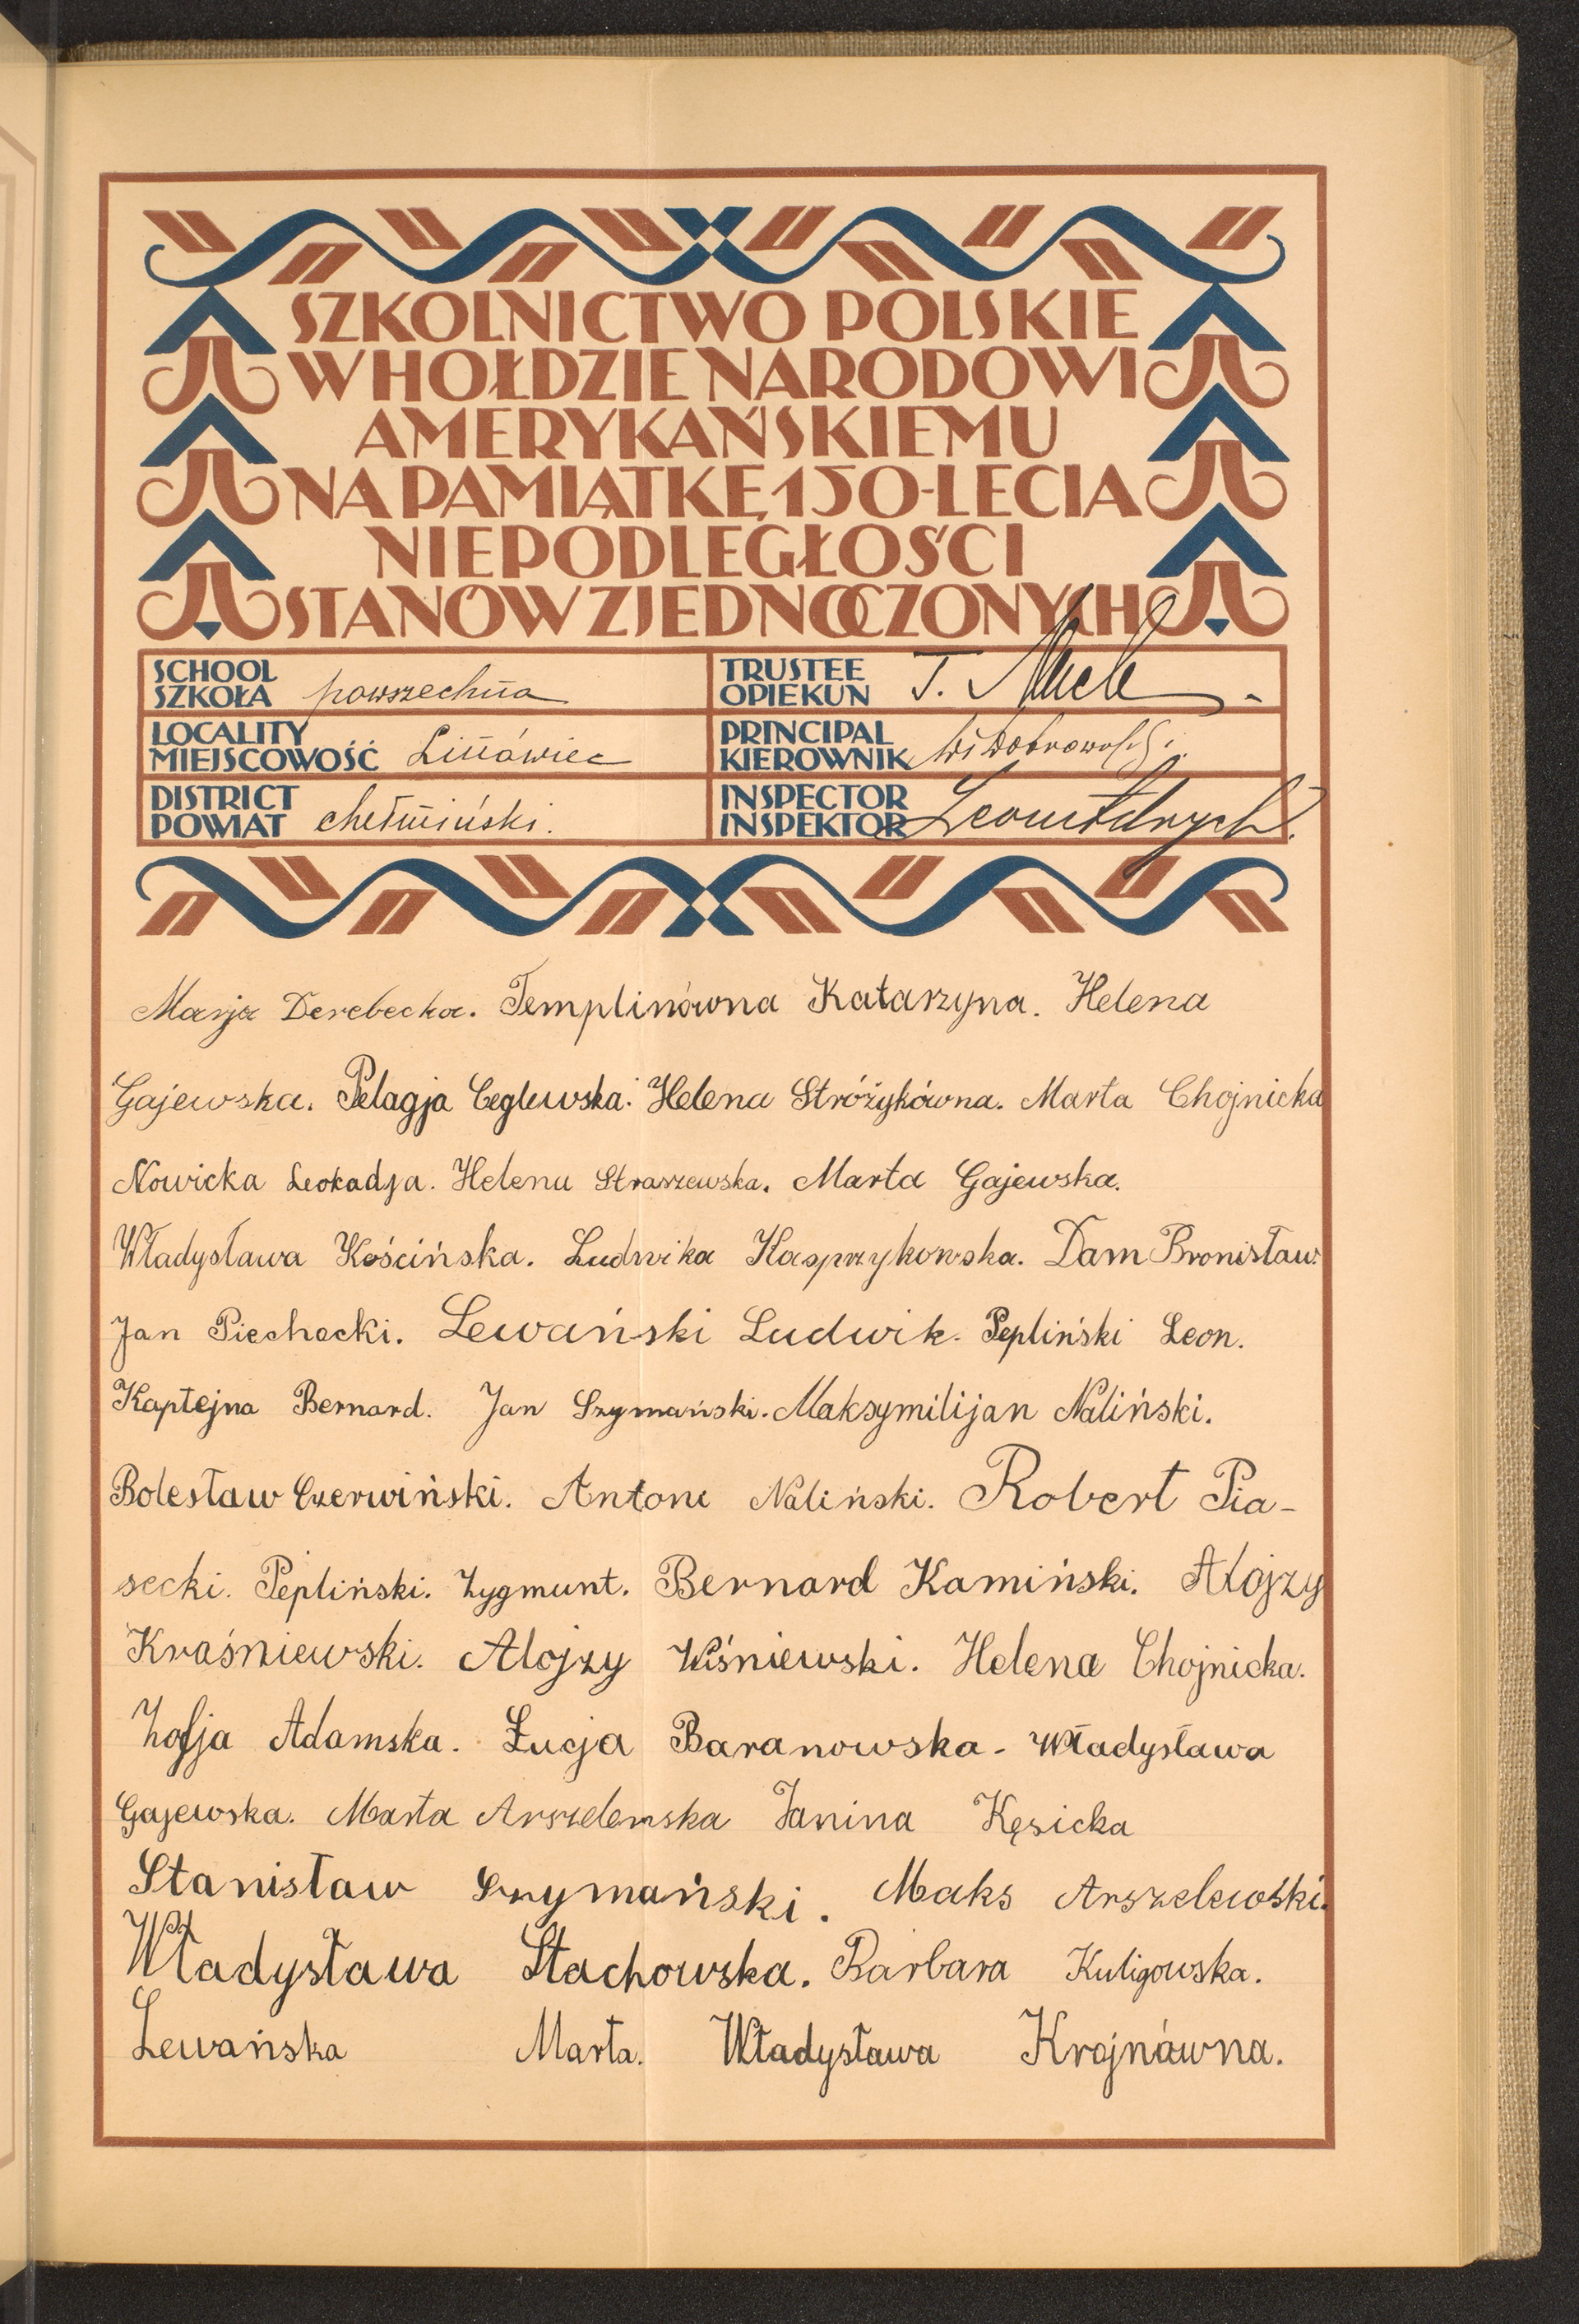 SZKOLNICTWO POLSKIE
W HOŁDZIE NARODOWI
AMERYKAŃSKIEMU
NA PAMIĄTKĘ 150-LECIA
NIEPODLEGŁOŚCI
STANÓW ZJEDNOCZONYCH
SCHOOL
SZKOŁA powszechna
TRUSTEE
OPIEKUN J.
LOCALITY
MIEJSCOWOŚĆ Linówiec
PRINCIPAL
KIEROWNIK Wł Dobrowolski
DISTRICT
POWIAT chełmiński.
INSPECTOR
INSPEKTOR
Marja Derebecka. Templinówna Katarzyna. Helena
Gajewska. Pelagja Ceglewska. Helena Stróżykówna. Marta Chojnicka
Nowicka Leokadja. Helena Straszewska. Marta Gajewska.
Władysława Kościńska. Ludwika Kasprzykowska. Dam Bronisław.
Jan Piechocki. Lewański Ludwik. Pepliński Leon.
Kaptejna Bernard. Jan Szymański. Maksymilijan Naliński.
Bolesław Czerwiński. Antoni Naliński. Robert Pia-
secki. Pepliński. Zygmunt. Bernard Kamiński. Alojzy
Kraśniewski. Alojzy Wiśniewski. Helena Chojnicka.
Zofja Adamska. Łucja Baranowska - Władysława
Gajewska. Marta Arszelewska Janina Kęsicka
Stanisław Szymański. Maks Arszelewski.
Władysława Stachowska. Barbara Kuligowska.
Lewańska Marta. Władysława Krojnówna.